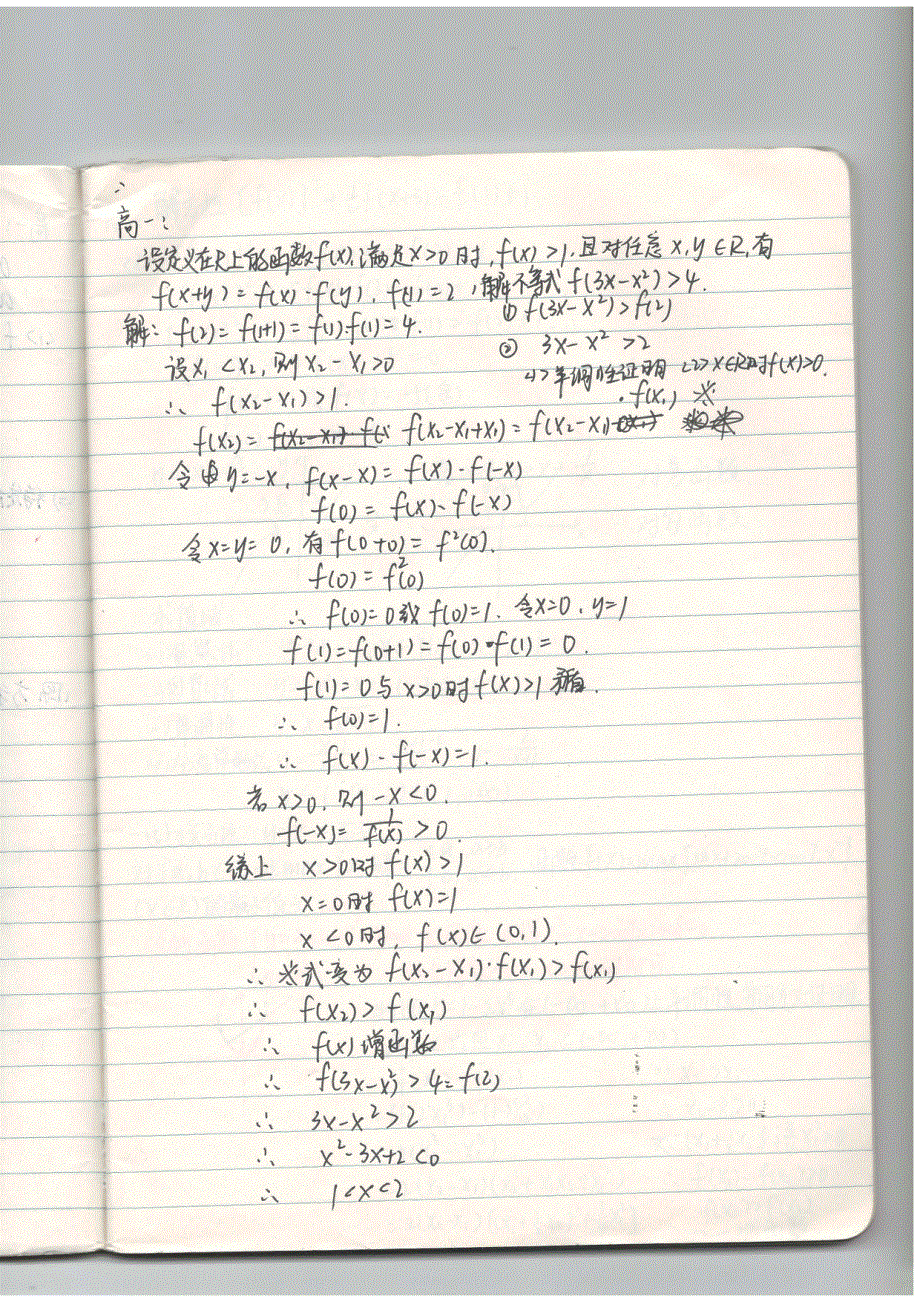 高一:
设定义在R上的函数f(x),满足x>0时,f(x)>1,且对任意x,y∈R,有
f(x+y)=f(x)·f(y),f(1)=2,解不等式f(3x-x²)>4.
解: f(2)=f(1+1)=f(1)·f(1)=4. ① f(3x-x²)>f(2)
设x₁<x₂,则x₂-x₁>0 ② 3x-x²>2
<1>单调性证明 <2>x∈R时f(x)>0.
∴ f(x₂-x₁)>1.
f(x₂)= f(x₂-x₁+x₁)=f(x₂-x₁)·f(x₁) ※
令y=-x,f(x-x)=f(x)·f(-x)
f(0)=f(x)·f(-x)
令x=y=0,有f(0+0)=f²(0).
f(0)=f²(0)
∴ f(0)=0或f(0)=1. 令x=0,y=1
f(1)=f(0+1)=f(0)·f(1)=0.
f(1)=0与x>0时f(x)>1矛盾.
∴ f(0)=1.
∴ f(x)·f(-x)=1.
若x>0,则-x<0.
f(-x)=1/f(x)>0.
综上 x>0时f(x)>1
x=0时f(x)=1
x<0时,f(x)∈(0,1).
∴ ※式变为f(x₂-x₁)·f(x₁)>f(x₁)
∴ f(x₂)>f(x₁)
∴ f(x)增函数
∴ f(3x-x²)>4=f(2)
∴ 3x-x²>2
∴ x²-3x+2<0
∴ 1<x<2